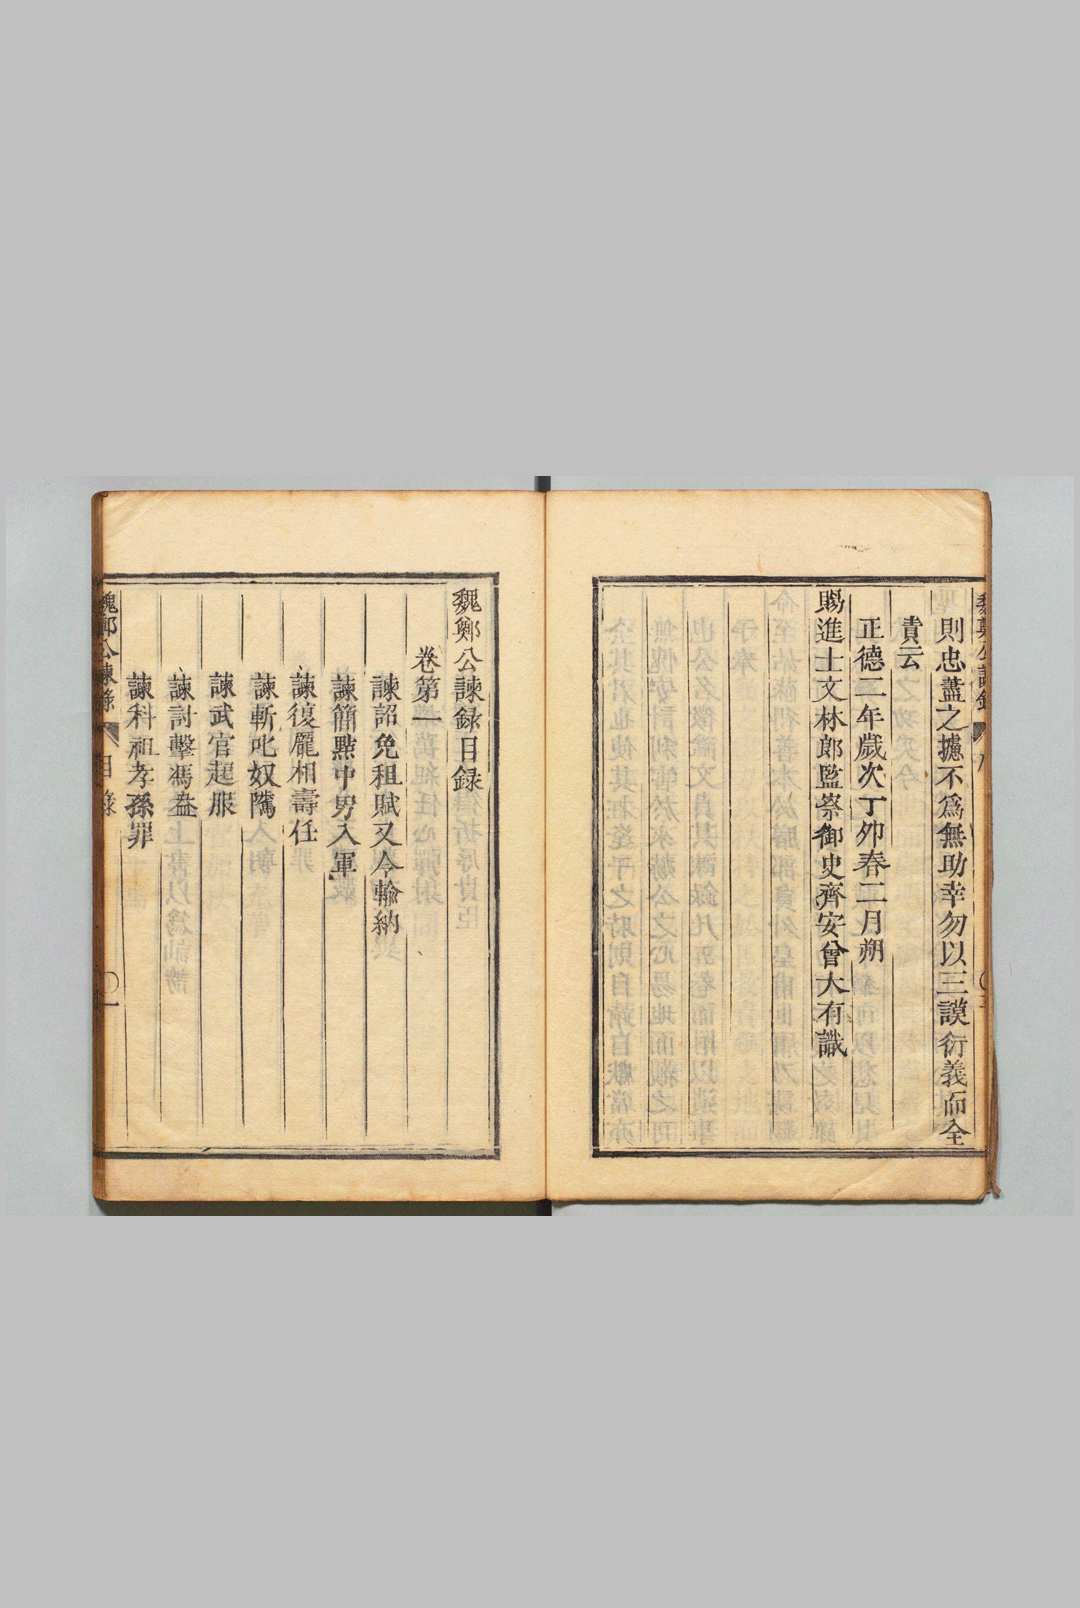 則忠藎之攄不爲無助幸勿以三謨衍義而全
責云
正德二年歲次丁卯春二月朔
賜進士文林郎監察御史齊安曾大有識
魏鄭公諫錄目錄
卷第一
諫詔免租賦又令輸納
諫簡㸃中男入軍
諫復龐相壽任
諫斬叱奴隲
諫武官起服
諫討擊馮盎
諫科祖孝孫罪
魏鄭公諫錄
目錄
一